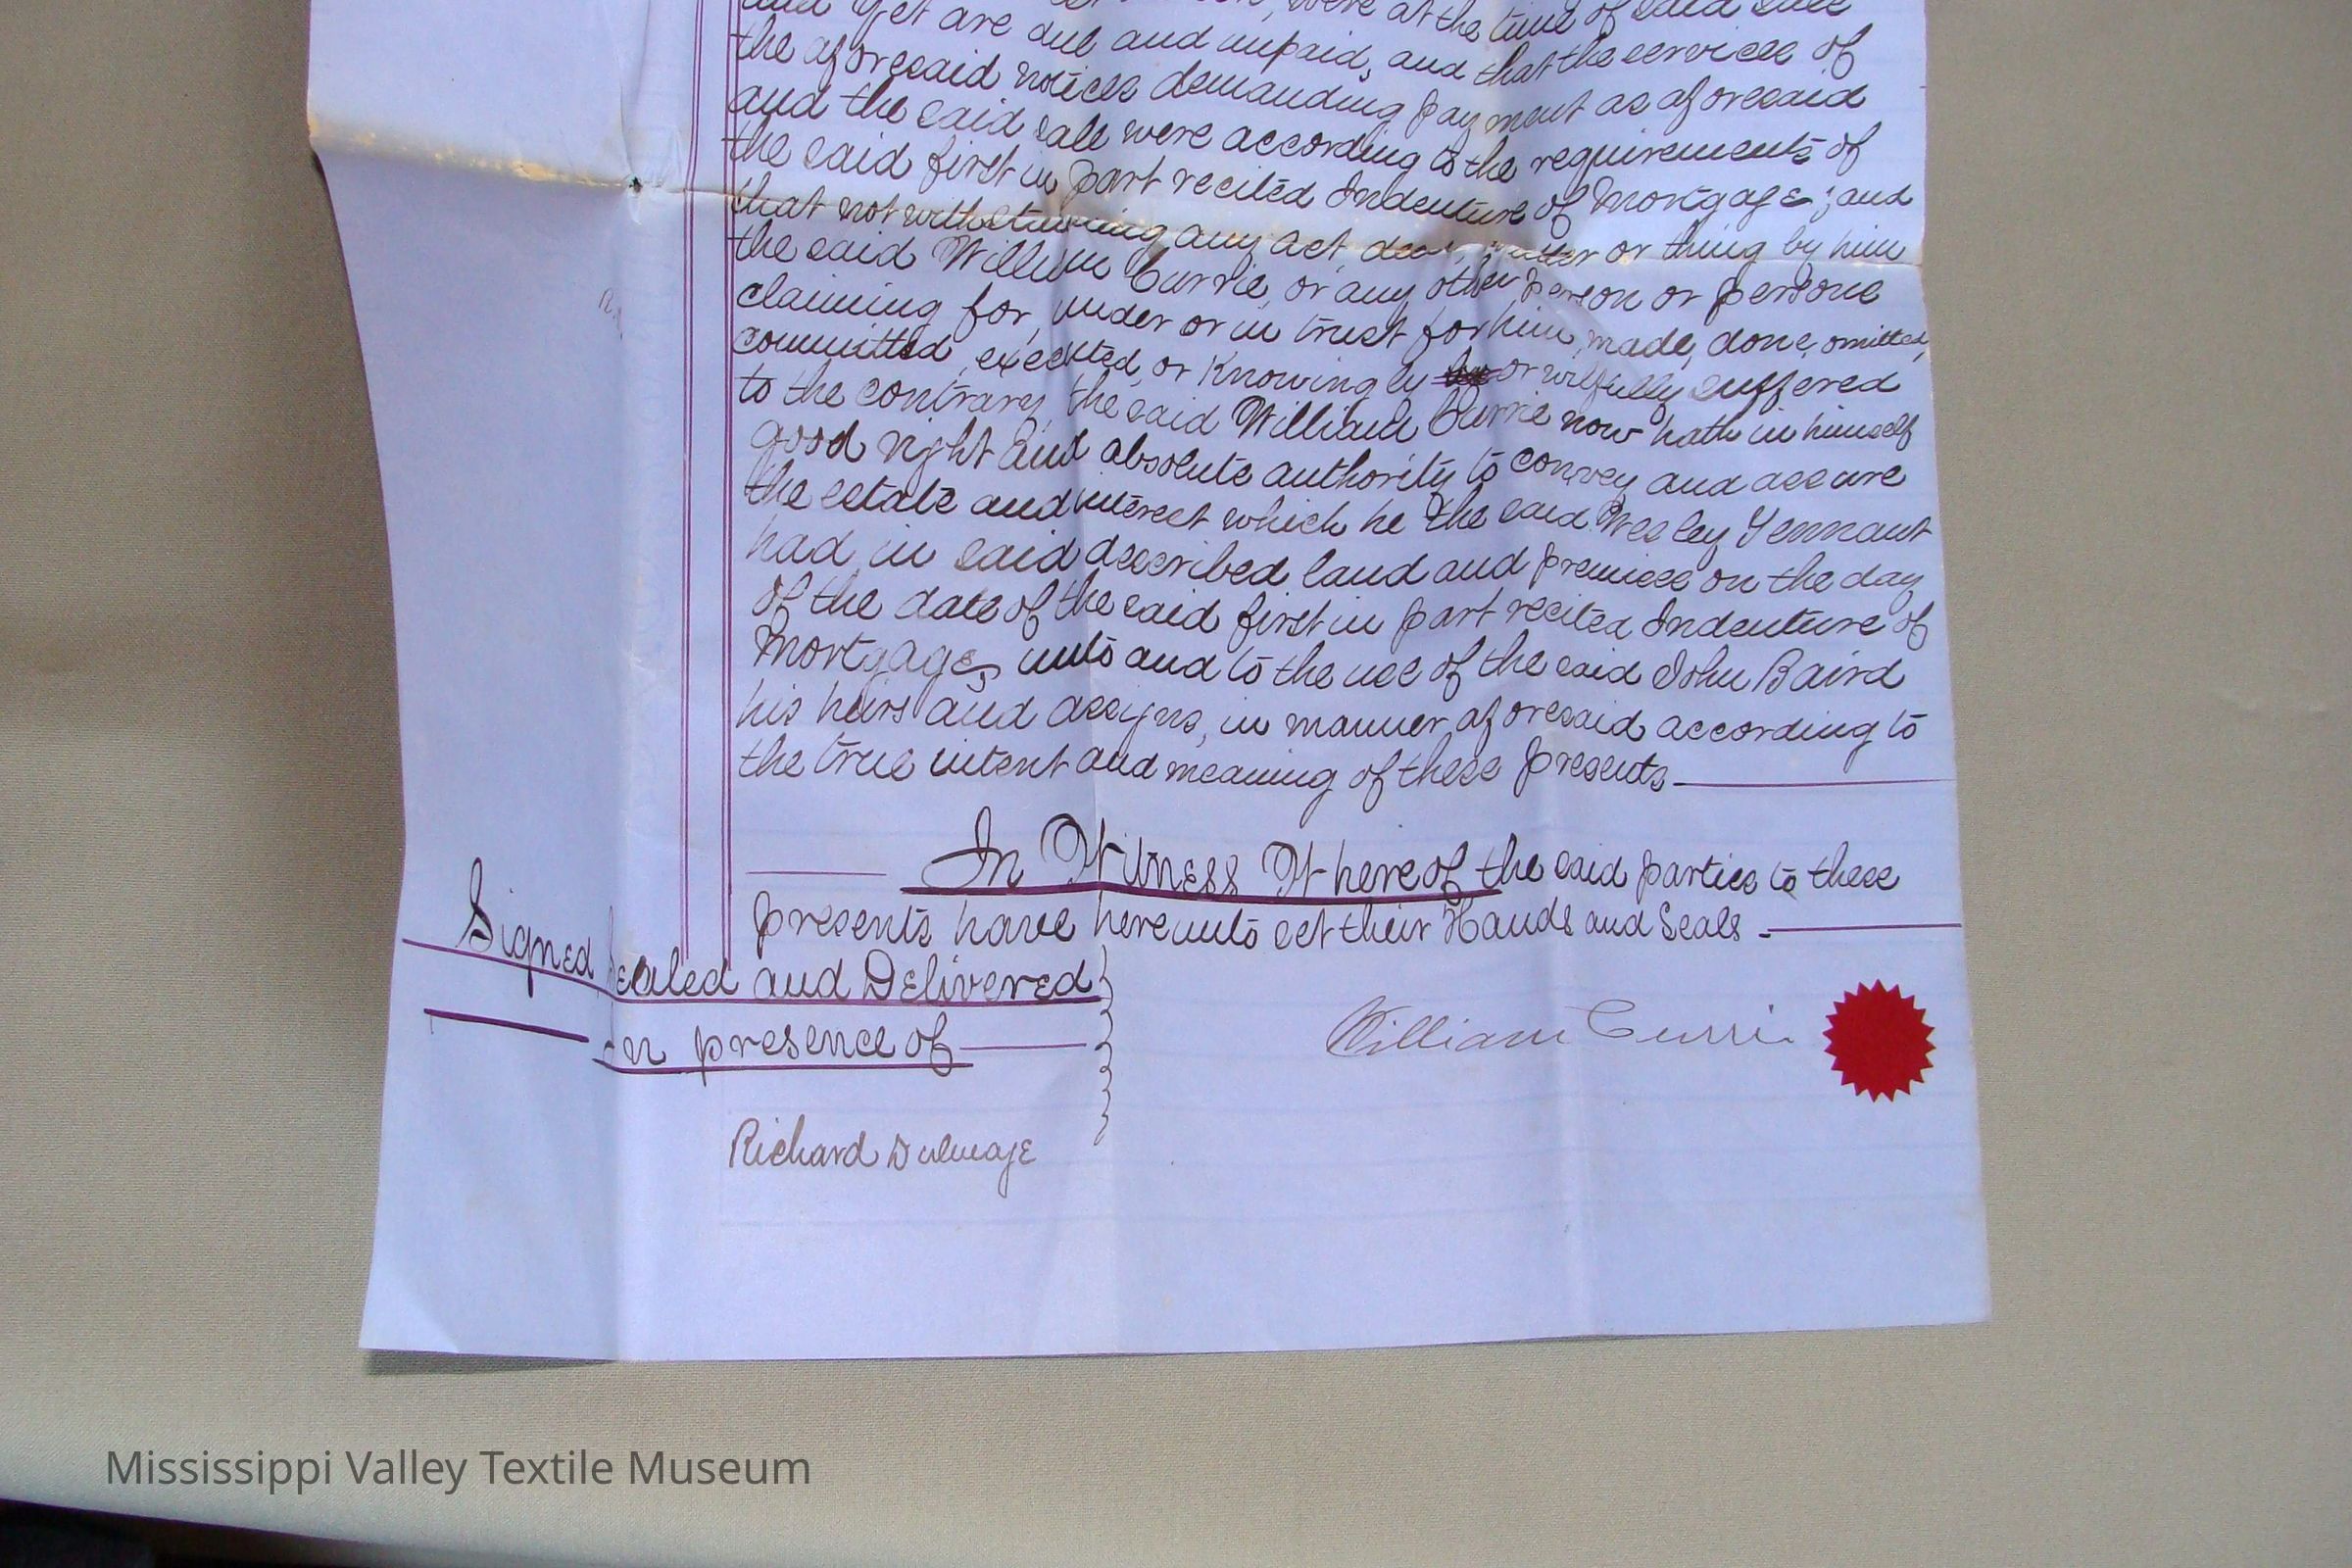 were at the time of said sale
and yet are due and unpaid, and that the services of
the aforesaid notices demanding payment as aforesaid
and the said sale were according to the requirements of
the said first in part recited Indenture of Mortgage; and
that notwithstanding any act, deed, matter or thing by him
the said William Currie, or any other person or persons
claiming for, under or in trust for him, made, done, omitted,
committed, executed, or Knowingly or wilfully suffered
to the contrary, the said William Currie now hath in himself
good right and absolute authority to convey and assure
the estate and interest which he the said Wesley Tennant
had in said described land and premises on the day
of the date of the said first in part recited Indenture of
Mortgage, unto and to the use of the said John Baird
his heirs and assigns, in manner aforesaid according to
the true intent and meaning of these presents.
In Witness Whereof the said parties to these
presents have hereunto set their Hands and Seals.
Signed Sealed and Delivered
In presence of
William Currie
Richard Dulmage
Mississippi Valley Textile Museum